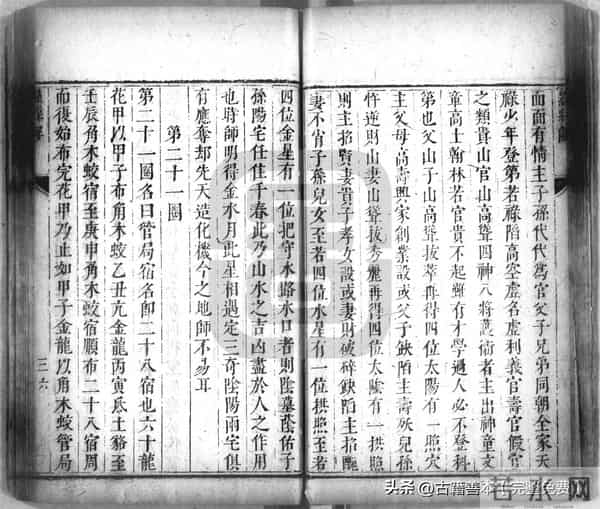 面面有情主子孫代代爲官父子兄弟同朝全家天
祿少年登第若祿陷高空虛名虛利義官壽官假官
之類貴山官山高聳四神八將護衛者主出神童文
章高士翰林若官貴不起縱有才學過人必不登科
第也父山子山高聳拔萃再得四位太陽有一照穴
主父母高壽興家創業設或父子缺陷主壽殀兒孫
忤逆財山妻山聳拔秀麗再得四位太陰有一拱照
則主招賢妻貴子孝女設或妻財破碎缺陷主招醜
妻不肖子孫兒女至若四位水星有一位拱照至若
四位金星有一位把守水路水口者則陰墓蔭佑子
孫陽宅住住千春此乃山水之吉凶盡於人之作用
也時師明得金水月此星相遇定三奇陰陽兩宅俱
有應奪却先天造化機今之地師不易耳
第二十一圖
第二十一圖名曰管局宿名卽二十八宿也六十龍
花甲以甲子布角木蛟乙丑亢金龍丙寅瓜土貉至
壬辰角木蛟宿至庚申角木蛟宿顺布二十八宿周
而復始布完花甲乃止如甲子金龍以角木蛟管局
三六
头条@古籍善本于完整免费